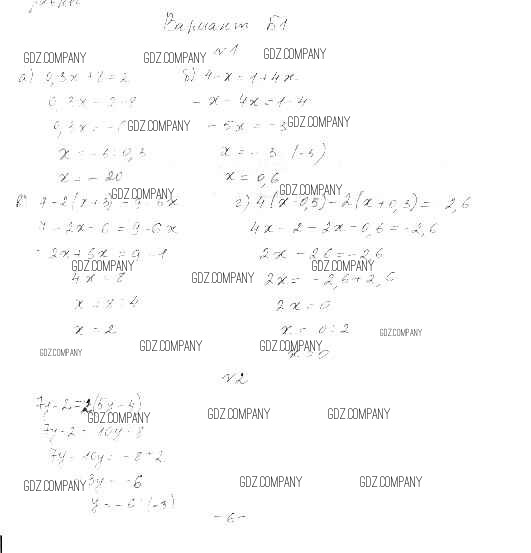 Вариант Б1
GDZ.COMPANY GDZ.COMPANY №1 GDZ.COMPANY
а) 0,3x + 8 = 2 б) 4 - x = 1 + 4x
- x - 4x = 1 - 4
GDZ.COMPANY - 5x = -3 GDZ.COMPANY
x = -6 : 0,3
x = - 20 x = 0,6
GDZ.COMPANY GDZ.COMPANY
г) 4(x - 0,5) - 2(x + 0,3) = - 2,6
4x - 2 - 2x - 0,6 = -2,6
2x - 2,6 = -2,6
GDZ.COMPANY GDZ.COMPANY
4x = 8 GDZ.COMPANY 2x = -2,6 + 2,6
x = 8 : 4 2x = 0
x = 2 x = 0 : 2 GDZ.COMPANY
GDZ.COMPANY GDZ.COMPANY GDZ.COMPANY
x = 0
№2
7y - 2 = 2(5y - 4)
GDZ.COMPANY GDZ.COMPANY GDZ.COMPANY
7y - 2 = 10y - 8
7y - 10y = - 8 + 2
GDZ.COMPANY - 3y = -6 GDZ.COMPANY GDZ.COMPANY
y = - 6 : (-3)
- 6 -